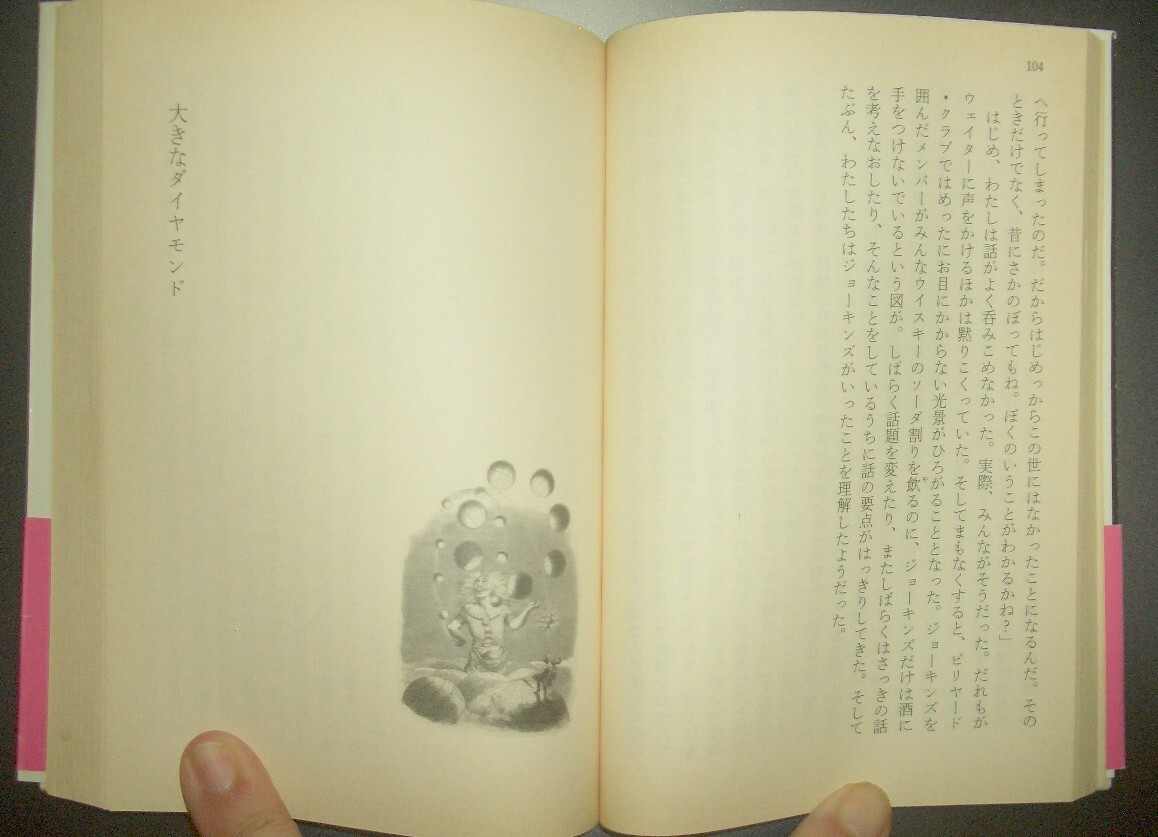 104
へ行ってしまったのだ。だからはじめっからこの世にはなかったことになるんだ。その
ときだけでなく、昔にさかのぼってもね。ぼくのいうことがわかるかね？」
はじめ、わたしは話がよく呑みこめなかった。実際、みんながそうだった。だれもが
ウェイターに声をかけるほかは黙りこくっていた。そしてまもなくすると、ビリヤード
・クラブではめったにお目にかからない光景がひろがることとなった。ジョーキンズを
囲んだメンバーがみんなウイスキーのソーダ割りを飲るのに、ジョーキンズだけは酒に
手をつけないでいるという図が。しばらく話題を変えたり、またしばらくはさっきの話
を考えなおしたり、そんなことをしているうちに話の要点がはっきりしてきた。そして
たぶん、わたしたちはジョーキンズがいったことを理解したようだった。
大きなダイヤモンド